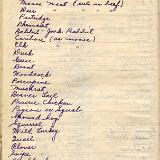 Moose meat (cuts as beef)
Bear
Partridge
Pheasant
Rabbit - Jack Rabbit
Caribou (as moose)
Elk
Duck
Geese
Brant
Woodcock
Porcupine
Muskrat
Beaver Tail
Prairie Chicken
Pigeon or Squab
Ground hog
Squirrel
Wild Turkey
Quail
Plover
Snipe